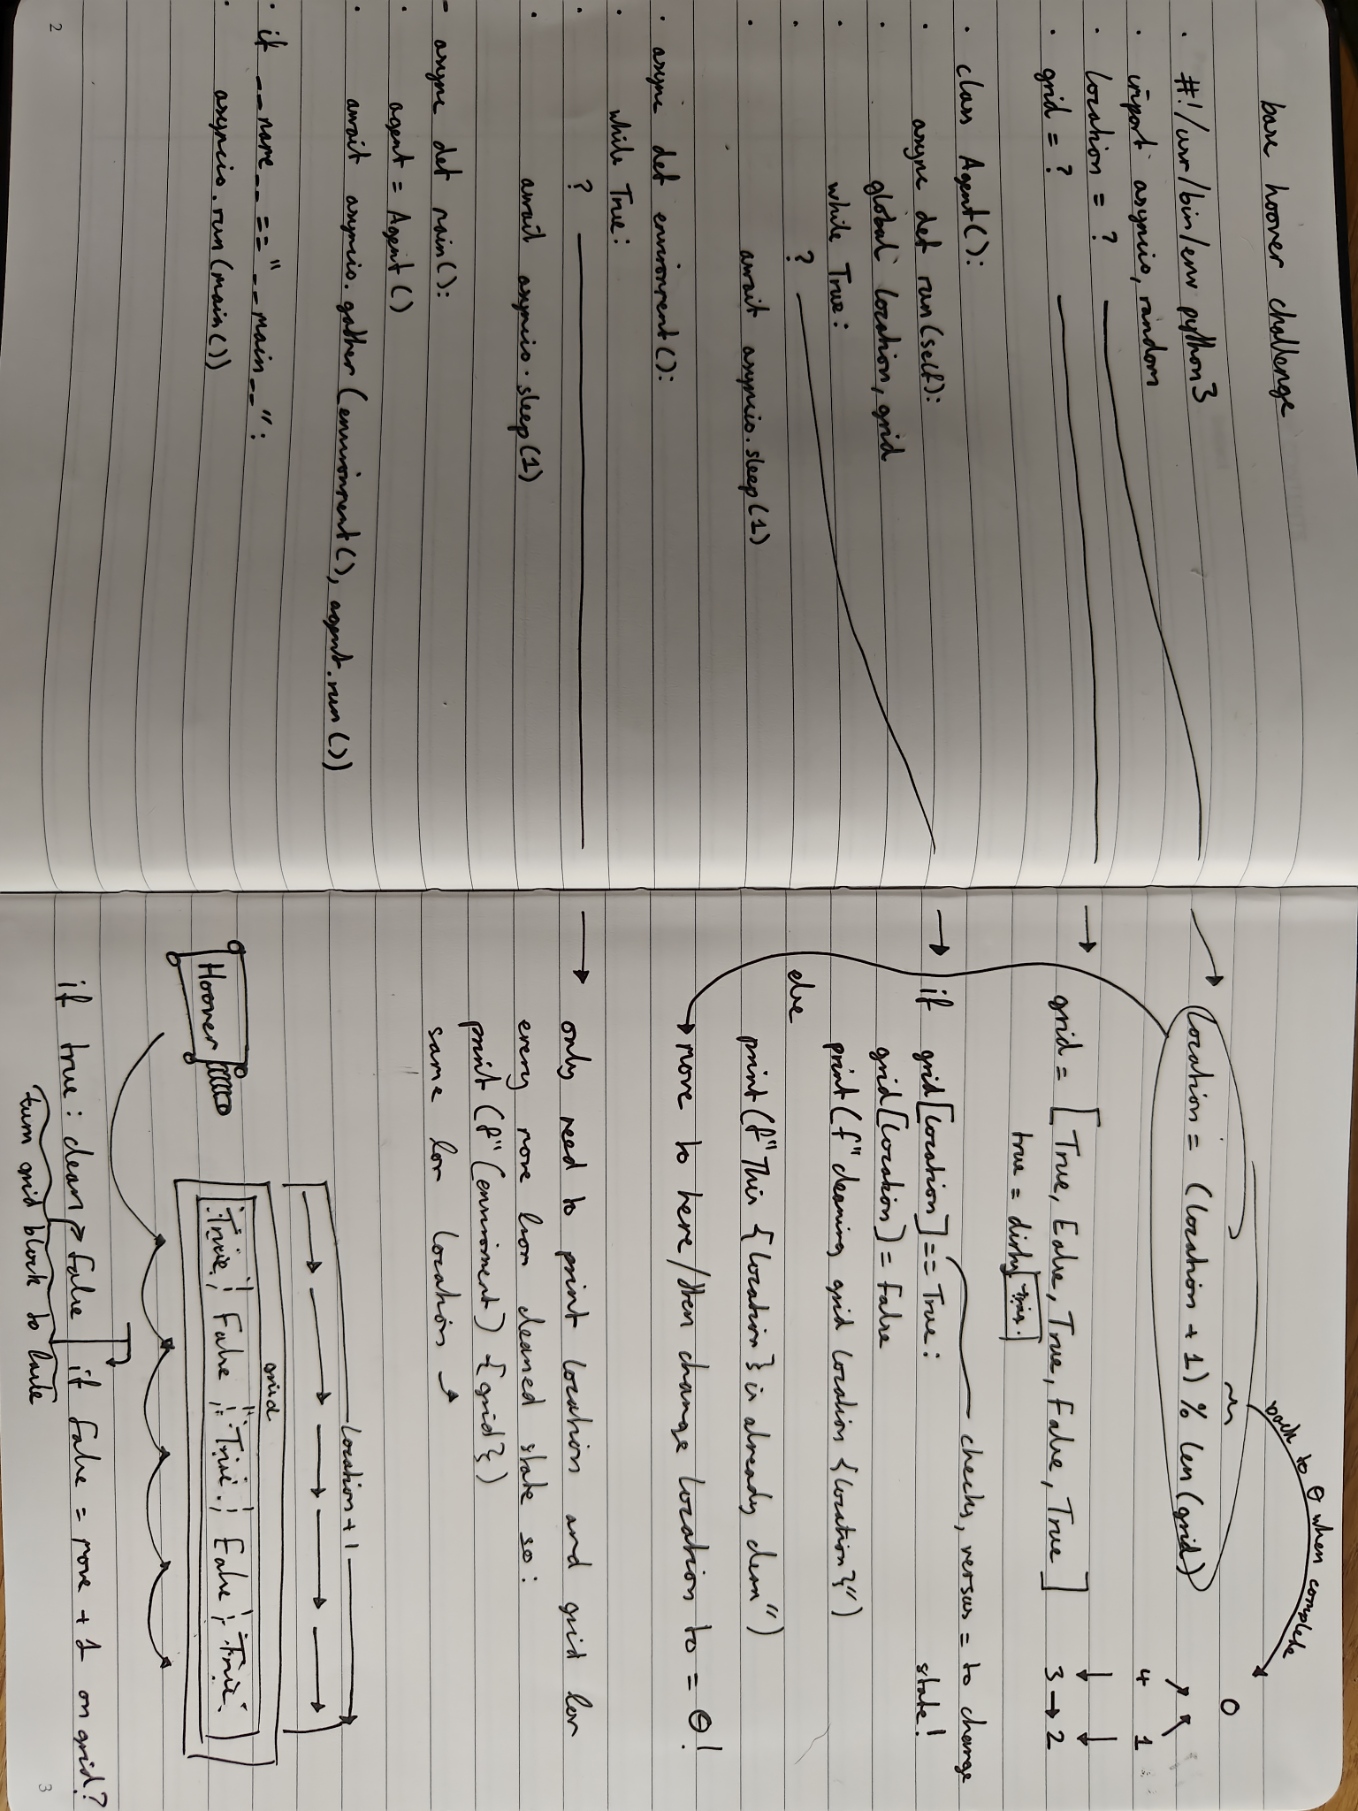 base hoover challenge
#!/usr/bin/env python3
import asyncio, random
location = ?
grid = ?
class Agent():
async def run(self):
global location, grid
while True:
?
await asyncio.sleep(1)
async def environment():
while True:
?
await asyncio.sleep(1)
async def main():
agent = Agent()
await asyncio.gather(environment(), agent.run())
if __name__ == "__main__":
asyncio.run(main())
2
back to 0 when complete
location = (location + 1) % len(grid)
0
4 1
3 → 2
grid = [True, False, True, False, True]
true = dirty
checks, versus = to change
state!
if grid[location] == True:
grid[location] = False
print(f"cleaning grid location {location}")
else
print(f"This {location} is already clean")
move to here/then change location to = 0!
only need to print location and grid for
every move from cleaned state so:
print(f"(enviroment) {grid})
same for location
location + 1
grid
Hoover
True False True False True
if true: clean → False if False = move + 1 on grid?
turn grid block to
3